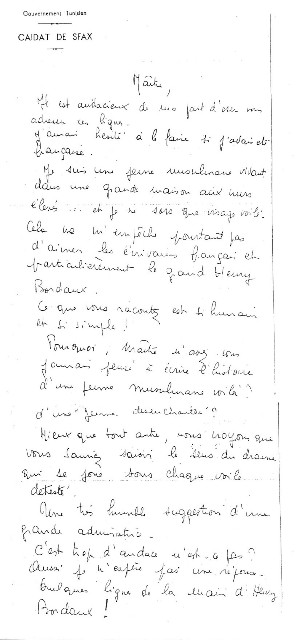 Gouvernement Tunisien
CAIDAT DE SFAX
Maître,
Il est audacieux de ma part d'oser vous
adresser ces lignes.
J'aurais hésité à le faire si j'avais été
française.
Je suis une jeune musulmane vivant
dans une grande maison aux murs
élevés... et je ne sors que visage voilé.
Cela ne m'empêche pourtant pas
d'aimer les écrivains français et
particulièrement le grand Henry
Bordeaux.
Ce que vous racontez est si humain
et si simple !
Pourquoi, Maître n'avez vous
jamais pensé à écrire l'histoire
d'une femme musulmane voilée ?
d'une "femme desenchantée" ?
Mieux que tout autre, vous croyons que
vous sauriez saisir le sens du drame
qui se joue sous chaque voile
détesté.
Une très humble suggestion d'une
grande admiratrice.
C'est trop d'audace n'est-ce pas ?
Aussi je n'espère pas une réponse.
Quelques lignes de la main d'Henry
Bordeaux !